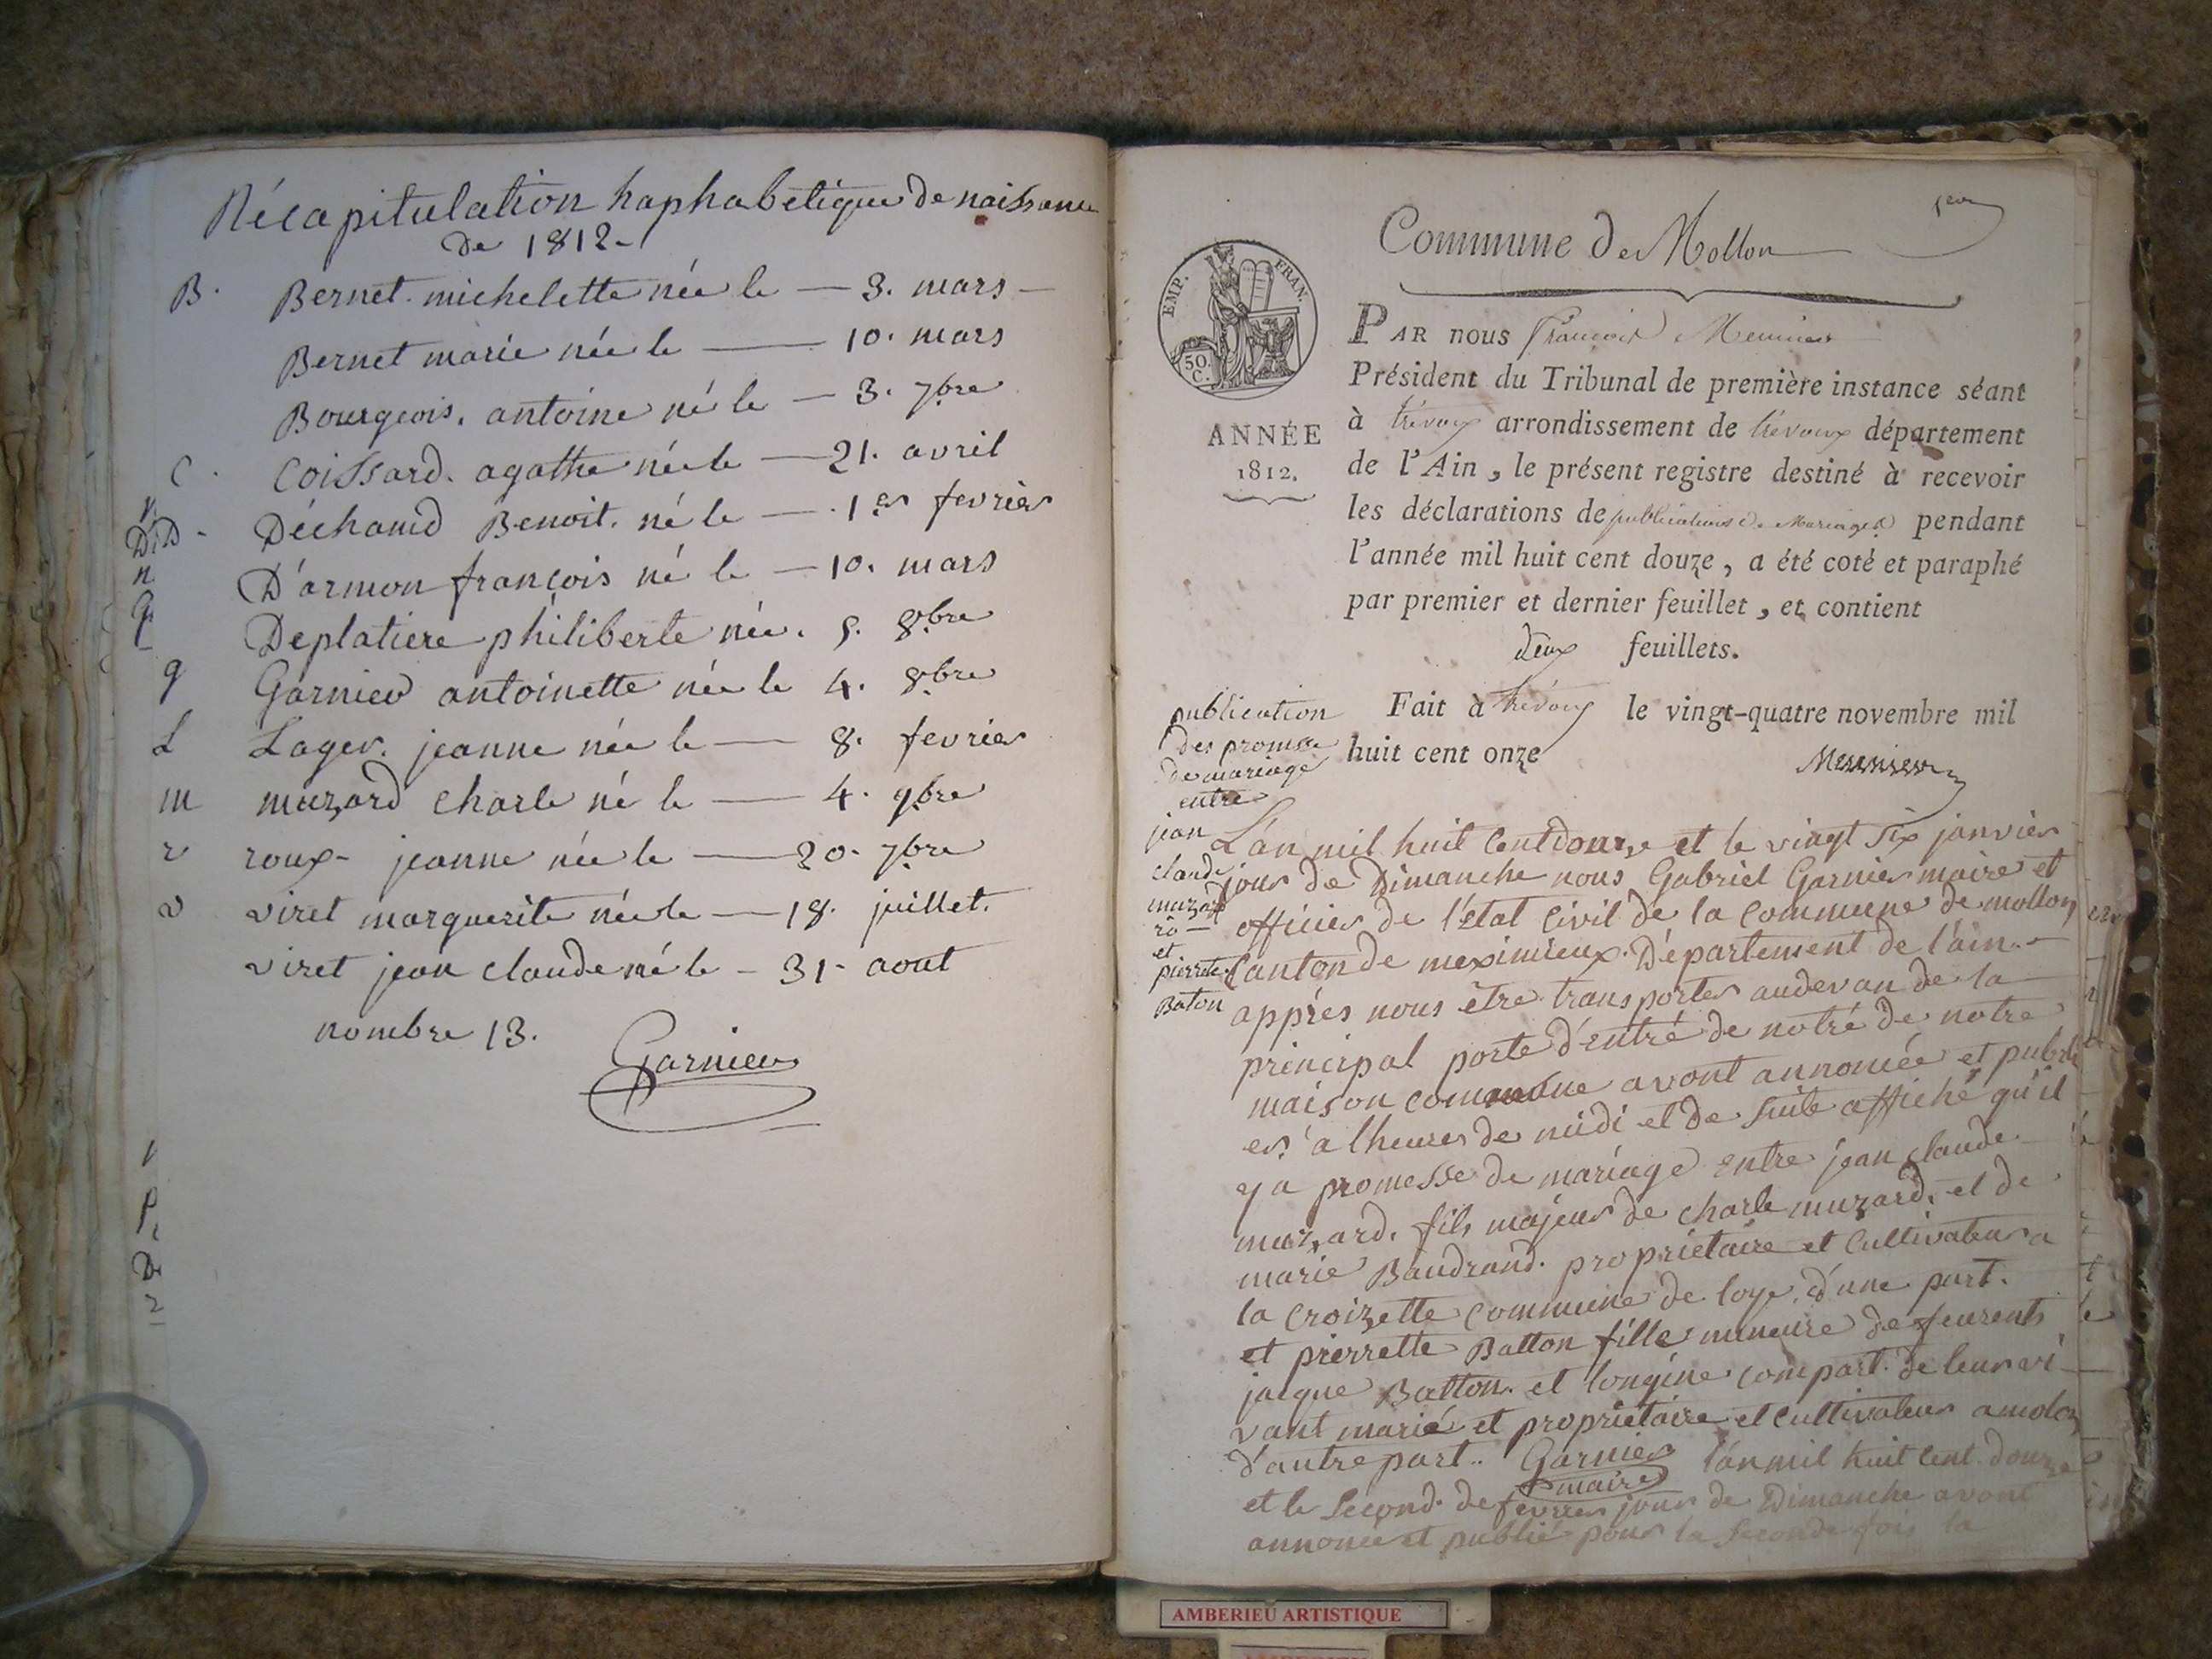 Récapitulation haphabetique de naissance
de 1812-
B. Bernet. michelette née le — 3. mars —
Bernet marie née le — 10. mars
Bourgeois. antoine né le — 3. 7bre
C. Coissard. agathe née le — 21. avril
D. Déchamd Benoit. né le — 1er fevrier
D'armon françois né le — 10. mars
Deplatiere philiberte née. 5. 8bre
g Garnier antoinette née le 4. 8bre
L Lager. jeanne née le — 8. fevrier
m muzard charle né le — 4. 9bre
r roux- jeanne née le — 20. 7bre
v viret marguerite née le — 18. juillet.
viret jean claude né le - 31- aout
nombre 13.
Garnier
Commune de Mollon
EMP. FRAN.
50. C.
ANNÉE
1812.
PAR nous François
Président du Tribunal de première instance séant
à trévoux arrondissement de trévoux département
de l'Ain, le présent registre destiné à recevoir
les déclarations de publications de Mariages pendant
l'année mil huit cent douze, a été coté et paraphé
par premier et dernier feuillet, et contient
deux feuillets.
Fait à trévoux le vingt-quatre novembre mil
huit cent onze
publication
des promesse
de mariage
entre
jean
claude
muzard
et
pierrete
Baton
L'an mil huit cent douze et le vingt six janvier
jour de Dimanche nous Gabriel Garnier maire et
officier de l'état civil de la commune de mollon
canton de meximieux. Département de l'ain. -
apprés nous être transporter audevan de la
principal porte d'entré de notré de notre
maison commune avont annoncée et publi
er. a lheure de midi et de suite affiché qu'il
y a promesse de mariage entre jean claude
muzard. fils majeur de charle muzard. et de
marie Baudrand. proprietaire et cultivateur a
la croizette commune de loye. d'une part.
et pierrette Batton fille mineure de
jacque Batton. et longine compart. de leur vi
vant marié et proprietaire et cultivateur a molon
d'autre part.. Garnier maire l'an mil huit cent. douze
et le second. de fevrier jour de Dimanche avont
annoncé et publié pour la seconde fois la
AMBERIEU ARTISTIQUE